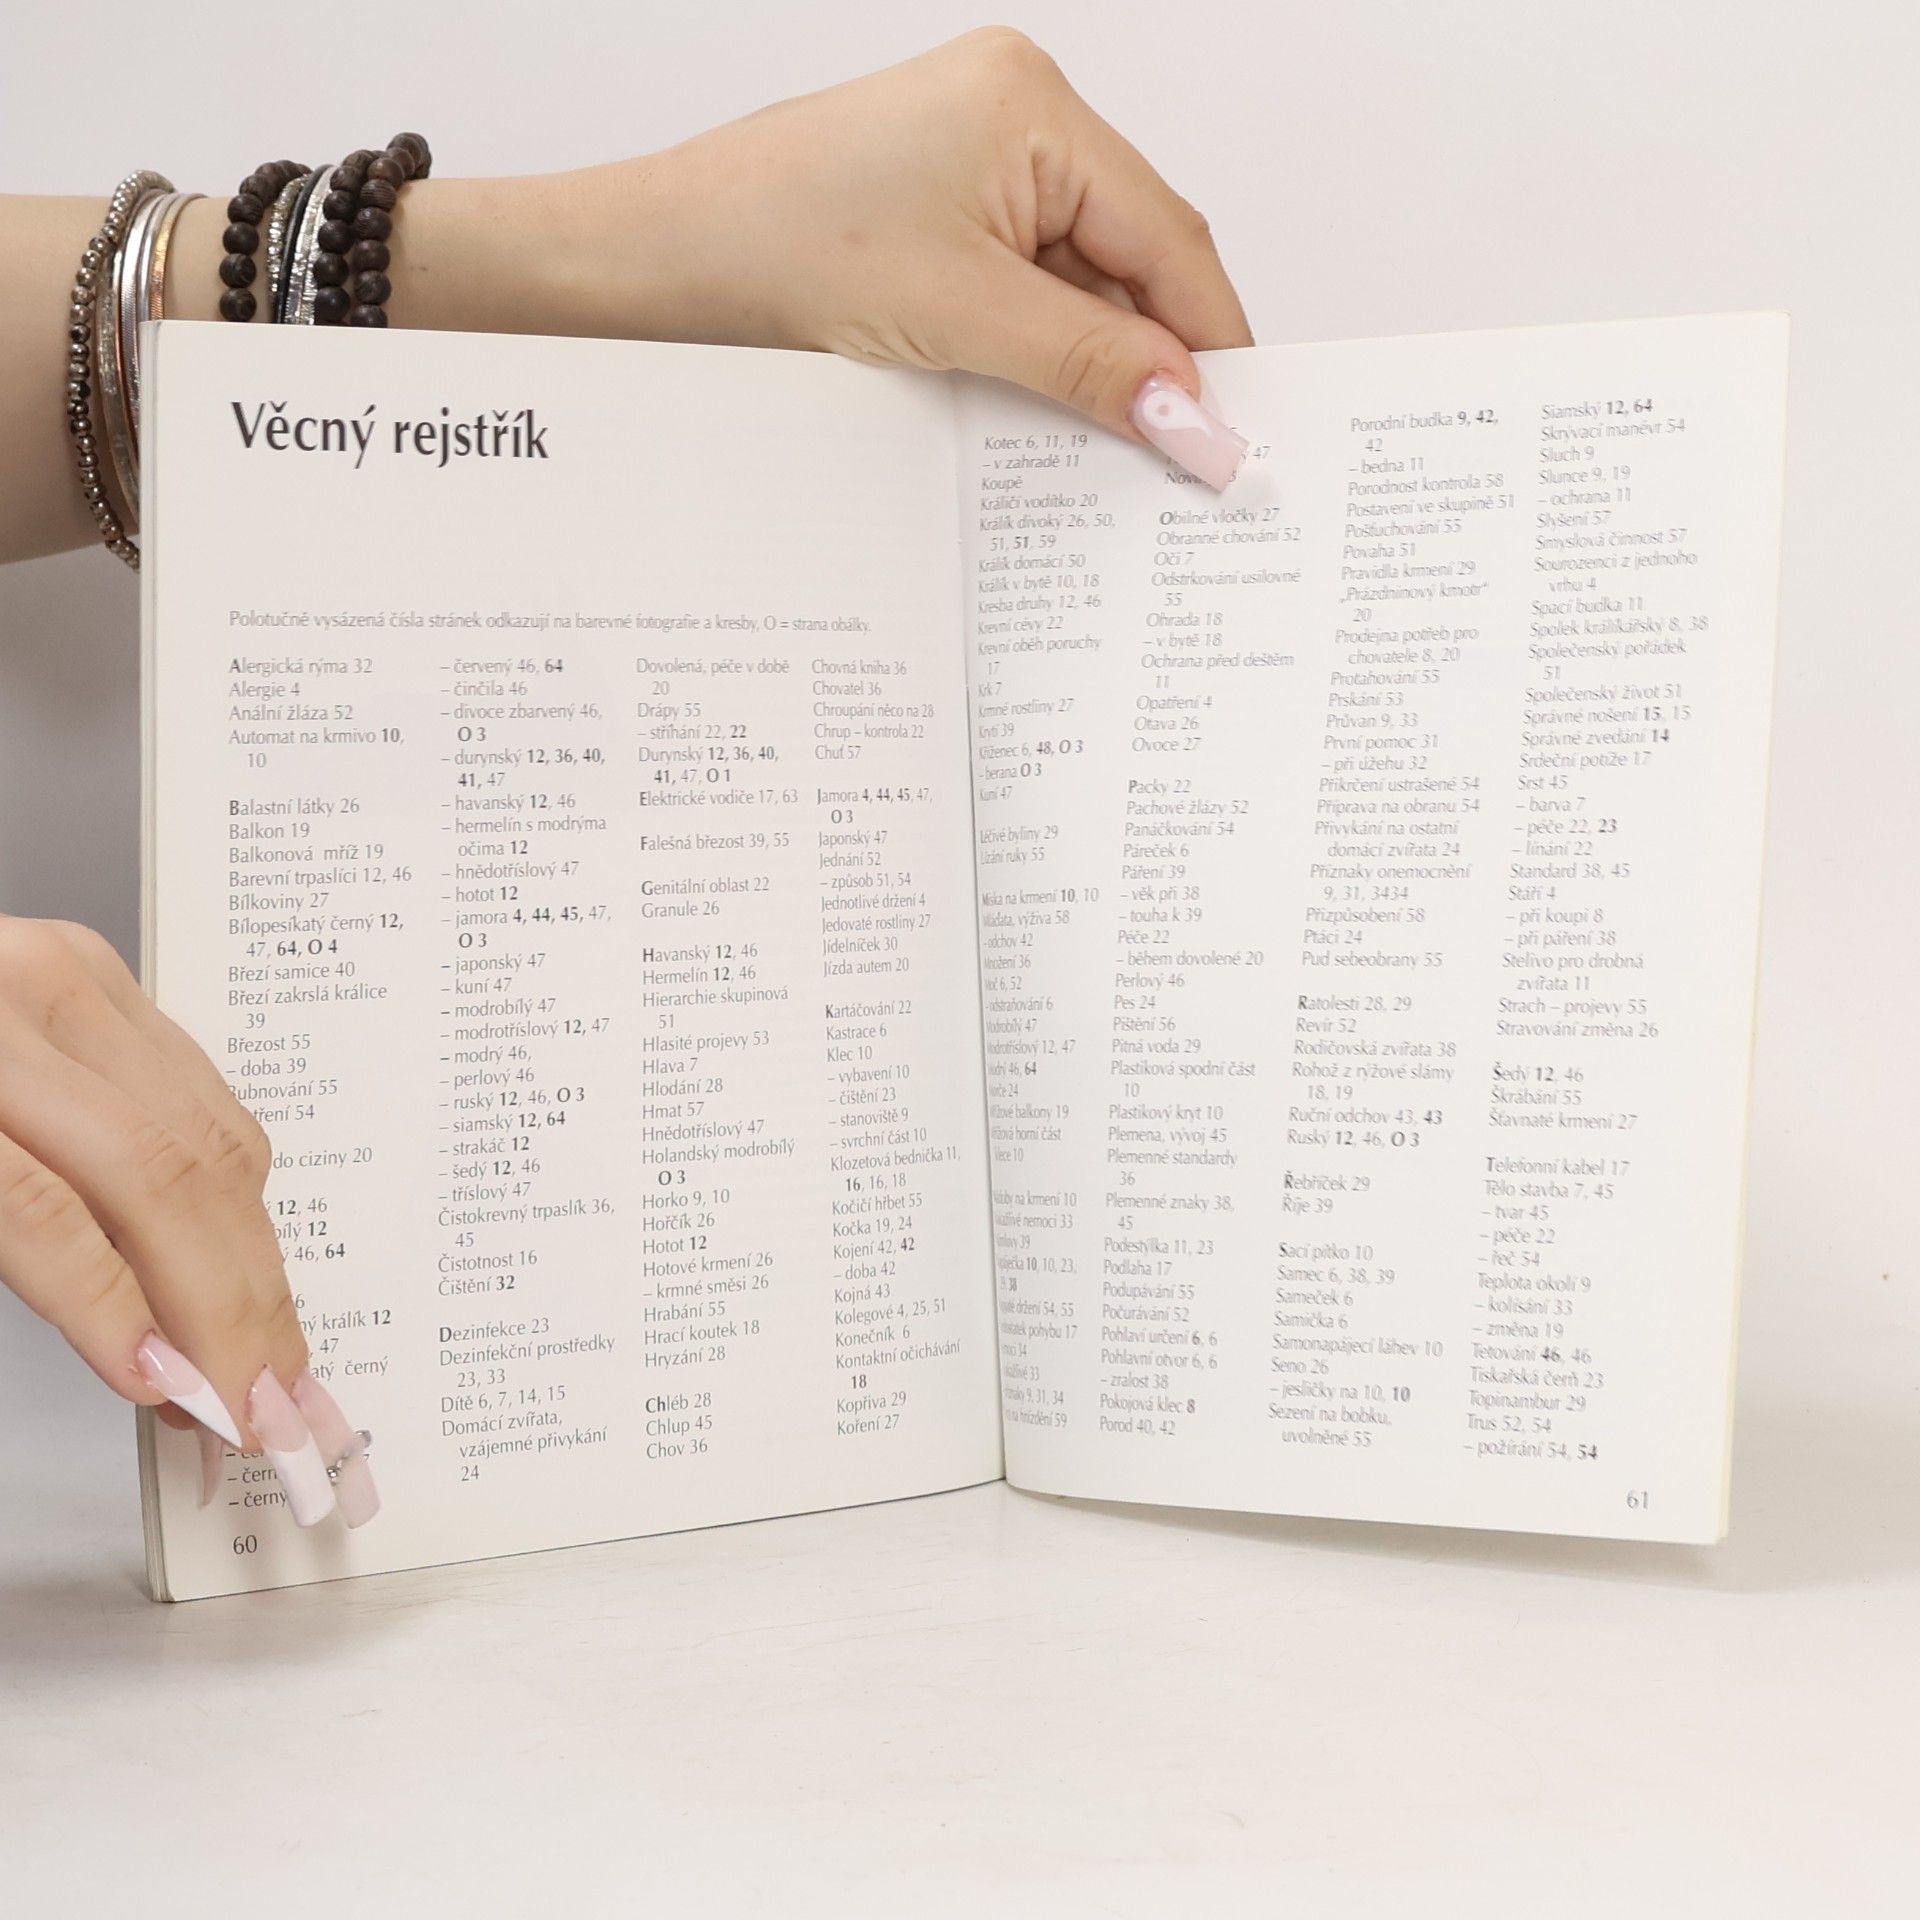 Věcný rejstřík
Polotučně vysázená čísla stránek odkazují na barevné fotografie a kresby, O = strana obálky.
Alergická rýma 32
Alergie 4
Anální žláza 52
Automat na krmivo 10,
10
Balastní látky 26
Balkon 19
Balkonová mříž 19
Barevní trpaslíci 12, 46
Bílkoviny 27
Bílopesíkatý černý 12,
47, 64, O 4
Březí samice 40
Březí zakrslá králice
39
Březost 55
– doba 39
do ciziny 20
12, 46
12
46, 64
králík 12
47
černý
– černý
60
– červený 46, 64
– činčila 46
– divoce zbarvený 46,
O 3
– durynský 12, 36, 40,
41, 47
– havanský 12, 46
– hermelín s modrýma
očima 12
– hnědotříslový 47
– hotot 12
– jamora 4, 44, 45, 47,
O 3
– japonský 47
– kuní 47
– modrobílý 47
– modrotříslový 12, 47
– modrý 46,
– perlový 46
– ruský 12, 46, O 3
– siamský 12, 64
– strakáč 12
– šedý 12, 46
– tříslový 47
Čistokrevný trpaslík 36,
45
Čistotnost 16
Čištění 32
Dezinfekce 23
Dezinfekční prostředky
23, 33
Dítě 6, 7, 14, 15
Domácí zvířata,
vzájemné přivykání
24
Dovolená, péče v době
20
Drápy 55
– stříhání 22, 22
Durynský 12, 36, 40,
41, 47, O 1
Elektrické vodiče 17, 63
Falešná březost 39, 55
Genitální oblast 22
Granule 26
Havanský 12, 46
Hermelín 12, 46
Hierarchie skupinová
51
Hlasité projevy 53
Hlava 7
Hlodání 28
Hmat 57
Hnědotříslový 47
Holandský modrobílý
O 3
Horko 9, 10
Hořčík 26
Hotot 12
Hotové krmení 26
– krmné směsi 26
Hrabání 55
Hrací koutek 18
Hryzání 28
Chléb 28
Chlup 45
Chov 36
Chovná kniha 36
Chovatel 36
Chroupání něco na 28
Chrup – kontrola 22
Chuť 57
Jamora 4, 44, 45, 47,
O 3
Japonský 47
Jednání 52
– způsob 51, 54
Jednotlivé držení 4
Jedovaté rostliny 27
Jídelníček 30
Jízda autem 20
Kartáčování 22
Kastrace 6
Klec 10
– vybavení 10
– čištění 23
– stanoviště 9
– svrchní část 10
Klozetová bednička 11,
16, 16, 18
Kočičí hřbet 55
Kočka 19, 24
Kojení 42, 42
– doba 42
Kojná 43
Kolegové 4, 25, 51
Konečník 6
Kontaktní očichávání
18
Kopřiva 29
Koření 27
Kotec 6, 11, 19
– v zahradě 11
Koupě
Králičí vodítko 20
Králík divoký 26, 50,
51, 51, 59
Králík domácí 50
Králík v bytě 10, 18
Kresba druhy 12, 46
Krevní cévy 22
Krevní oběh poruchy
17
Krk 7
Krmné rostliny 27
Krytí 39
Kříženec 6, 48, O 3
- berana O 3
Kuní 47
Léčivé byliny 29
Lízání ruky 55
Miska na krmení 10, 10
Mláďata, výživa 58
- odchov 42
Množení 36
Moč 6, 52
- odstraňování 6
Modrobílý 47
Modrotříslový 12, 47
Modrý 46, 64
24
Mřížové balkony 19
horní část
10
na krmení 10
nemoci 33
39
10, 10, 23,
38
držení 54, 55
pohybu 17
34
33
9, 31, 34
59
47
Obilné vločky 27
Obranné chování 52
Oči 7
Odstrkování usilovné
55
Ohrada 18
– v bytě 18
Ochrana před deštěm
11
Opatření 4
Otava 26
Ovoce 27
Packy 22
Pachové žlázy 52
Panáčkování 54
Páreček 6
Páření 39
– věk při 38
– touha k 39
Péče 22
– během dovolené 20
Perlový 46
Pes 24
Pištění 56
Pitná voda 29
Plastiková spodní část
10
Plastikový kryt 10
Plemena, vývoj 45
Plemenné standardy
36
Plemenné znaky 38,
45
Podestýlka 11, 23
Podlaha 17
Podupávání 55
Počurávání 52
Pohlaví určení 6, 6
Pohlavní otvor 6, 6
– zralost 38
Pokojová klec 8
Porod 40, 42
Porodní budka 9, 42,
42
– bedna 11
Porodnost kontrola 58
Postavení ve skupině 51
Pošťuchování 55
Povaha 51
Pravidla krmení 29
„Prázdninový kmotr“
20
Prodejna potřeb pro
chovatele 8, 20
Protahování 55
Prskání 53
Průvan 9, 33
První pomoc 31
– při úžehu 32
Přikrčení ustrašené 54
Příprava na obranu 54
Přivykání na ostatní
domácí zvířata 24
Příznaky onemocnění
9, 31, 3434
Přizpůsobení 58
Ptáci 24
Pud sebeobrany 55
Ratolesti 28, 29
Revír 52
Rodičovská zvířata 38
Rohož z rýžové slámy
18, 19
Ruční odchov 43, 43
Ruský 12, 46, O 3
Řebříček 29
Říje 39
Sací pítko 10
Samec 6, 38, 39
Sameček 6
Samička 6
Samonapájecí láhev 10
Seno 26
– jesličky na 10, 10
Sezení na bobku,
uvolněné 55
Siamský 12, 64
Skrývací manévr 54
Sluch 9
Slunce 9, 19
– ochrana 11
Slyšení 57
Smyslová činnost 57
Sourozenci z jednoho
vrhu 4
Spací budka 11
Spolek králíkářský 8, 38
Společenský pořádek
51
Společenský život 51
Správné nošení 15, 15
Správné zvedání 14
Srdeční potíže 17
Srst 45
– barva 7
– péče 22, 23
– línání 22
Standard 38, 45
Stáří 4
– při koupi 8
– při páření 38
Stelivo pro drobná
zvířata 11
Strach – projevy 55
Stravování změna 26
Šedý 12, 46
Škrábání 55
Šťavnaté krmení 27
Telefonní kabel 17
Tělo stavba 7, 45
– tvar 45
– péče 22
– řeč 54
Teplota okolí 9
– kolísání 33
– změna 19
Tetování 46, 46
Tiskařská čerň 23
Topinambur 29
Trus 52, 54
– požírání 54, 54
61